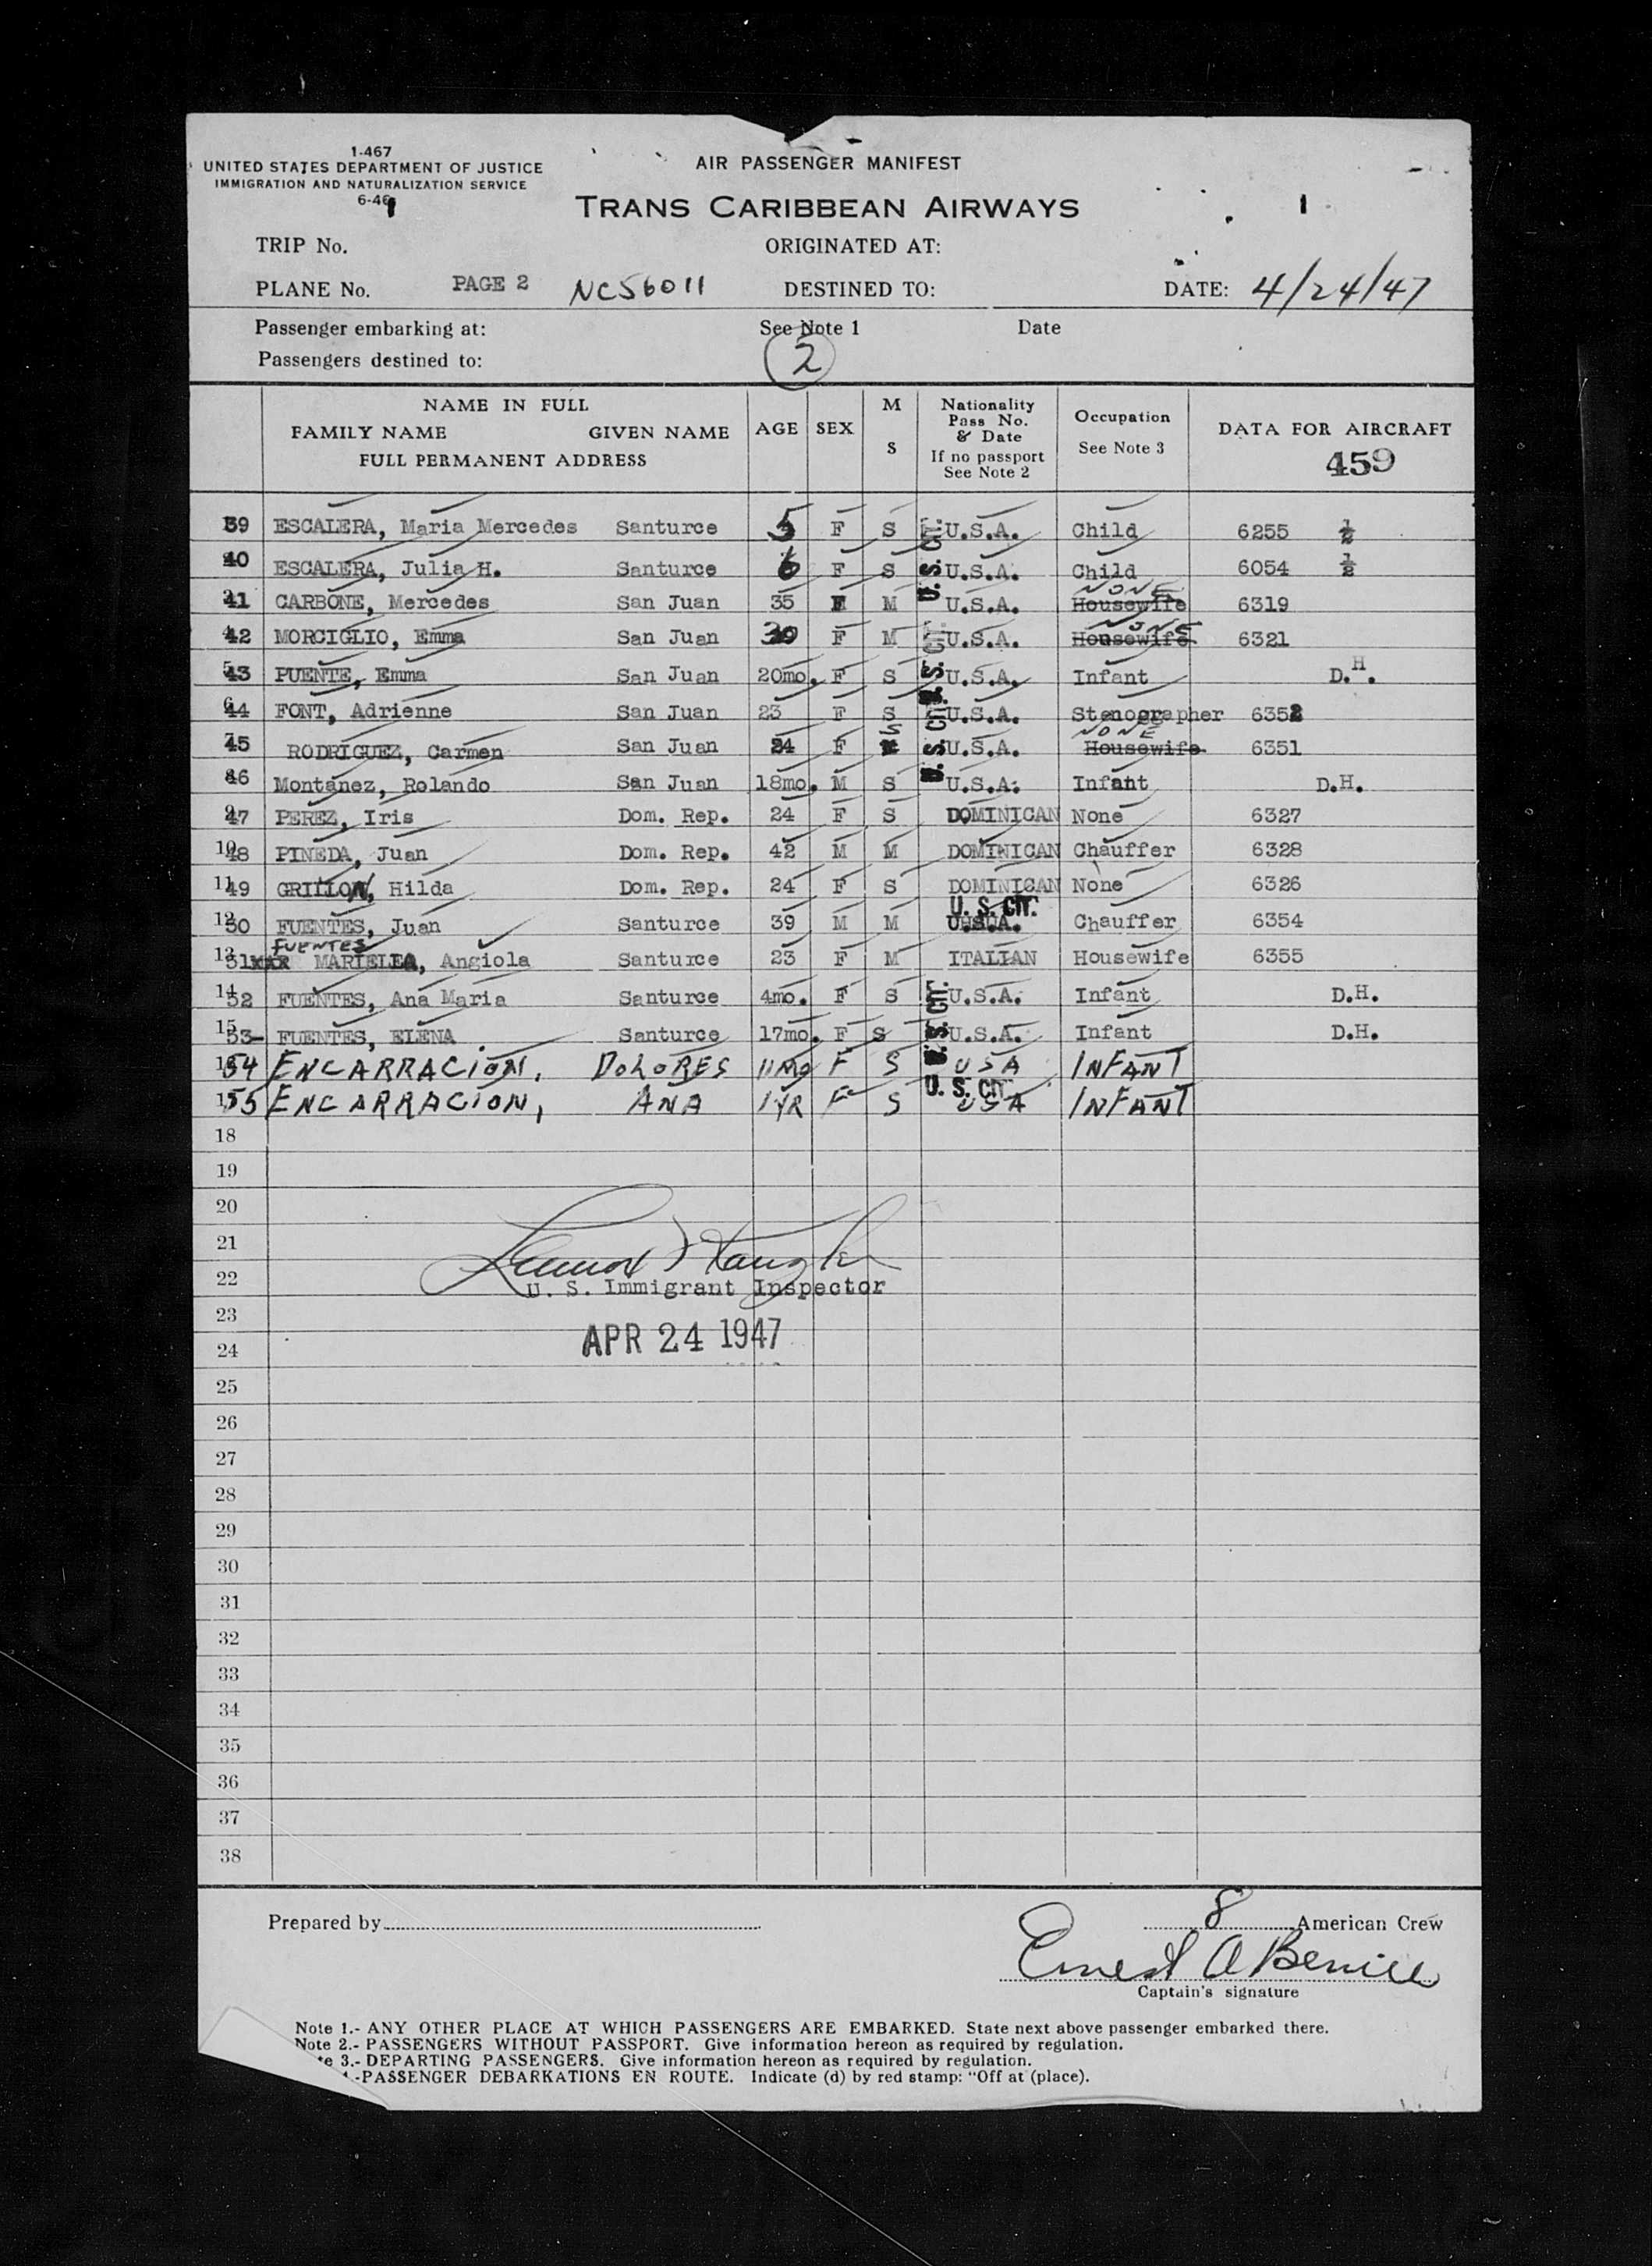 1-467
UNITED STATES DEPARTMENT OF JUSTICE
IMMIGRATION AND NATURALIZATION SERVICE
6-46
AIR PASSENGER MANIFEST
TRANS CARIBBEAN AIRWAYS
TRIP No. ORIGINATED AT:
PLANE No. PAGE 2 NC56011 DESTINED TO: DATE: 4/24/47
Passenger embarking at: See Note 1 Date
Passengers destined to: 2
NAME IN FULL
FAMILY NAME GIVEN NAME
FULL PERMANENT ADDRESS
AGE SEX M S
Nationality
Pass No.
& Date
If no passport
See Note 2
Occupation
See Note 3
DATA FOR AIRCRAFT
459
39 ESCALERA, Maria Mercedes Santurce 5 F S U.S. CIT. U.S.A. Child 6255 1/2
40 ESCALERA, Julia H. Santurce 6 F S U.S.A. Child 6054 1/2
41 CARBONE, Mercedes San Juan 35 F M U.S.A. Housewife NONE 6319
42 MORCIGLIO, Emma San Juan 30 F M U.S. CIT. U.S.A. Housewife NONE 6321
43 PUENTE, Emma San Juan 20mo. F S U.S.A. Infant D.H.
44 FONT, Adrienne San Juan 23 F S U.S. CIT. U.S.A. Stenographer 6352
45 RODRIGUEZ, Carmen San Juan 24 F S U.S.A. Housewife NONE 6351
46 Montanez, Rolando San Juan 18mo. M S U.S.A. Infant D.H.
47 PEREZ, Iris Dom. Rep. 24 F S DOMINICAN None 6327
48 PINEDA, Juan Dom. Rep. 42 M M DOMINICAN Chauffer 6328
49 GRILLON, Hilda Dom. Rep. 24 F S DOMINICAN None 6326
50 FUENTES, Juan Santurce 39 M M U. S. CIT. Chauffer 6354
FUENTES
51 MARIELLA, Angiola Santurce 23 F M ITALIAN Housewife 6355
52 FUENTES, Ana Maria Santurce 4mo. F S U.S. CIT. U.S.A. Infant D.H.
53 FUENTES, ELENA Santurce 17mo. F S U.S.A. Infant D.H.
54 ENCARRACION, DOLORES 11MO F S USA INFANT
55 ENCARRACION, ANA 1YR F S U. S. CIT. USA INFANT
18
19
20
21
22
U. S. Immigrant Inspector
23
APR 24 1947
24
25
26
27
28
29
30
31
32
33
34
35
36
37
38
Prepared by 8 American Crew
Captain's signature
Note 1.- ANY OTHER PLACE AT WHICH PASSENGERS ARE EMBARKED. State next above passenger embarked there.
Note 2.- PASSENGERS WITHOUT PASSPORT. Give information hereon as required by regulation.
3.- DEPARTING PASSENGERS. Give information hereon as required by regulation.
-PASSENGER DEBARKATIONS EN ROUTE. Indicate (d) by red stamp: "Off at (place).